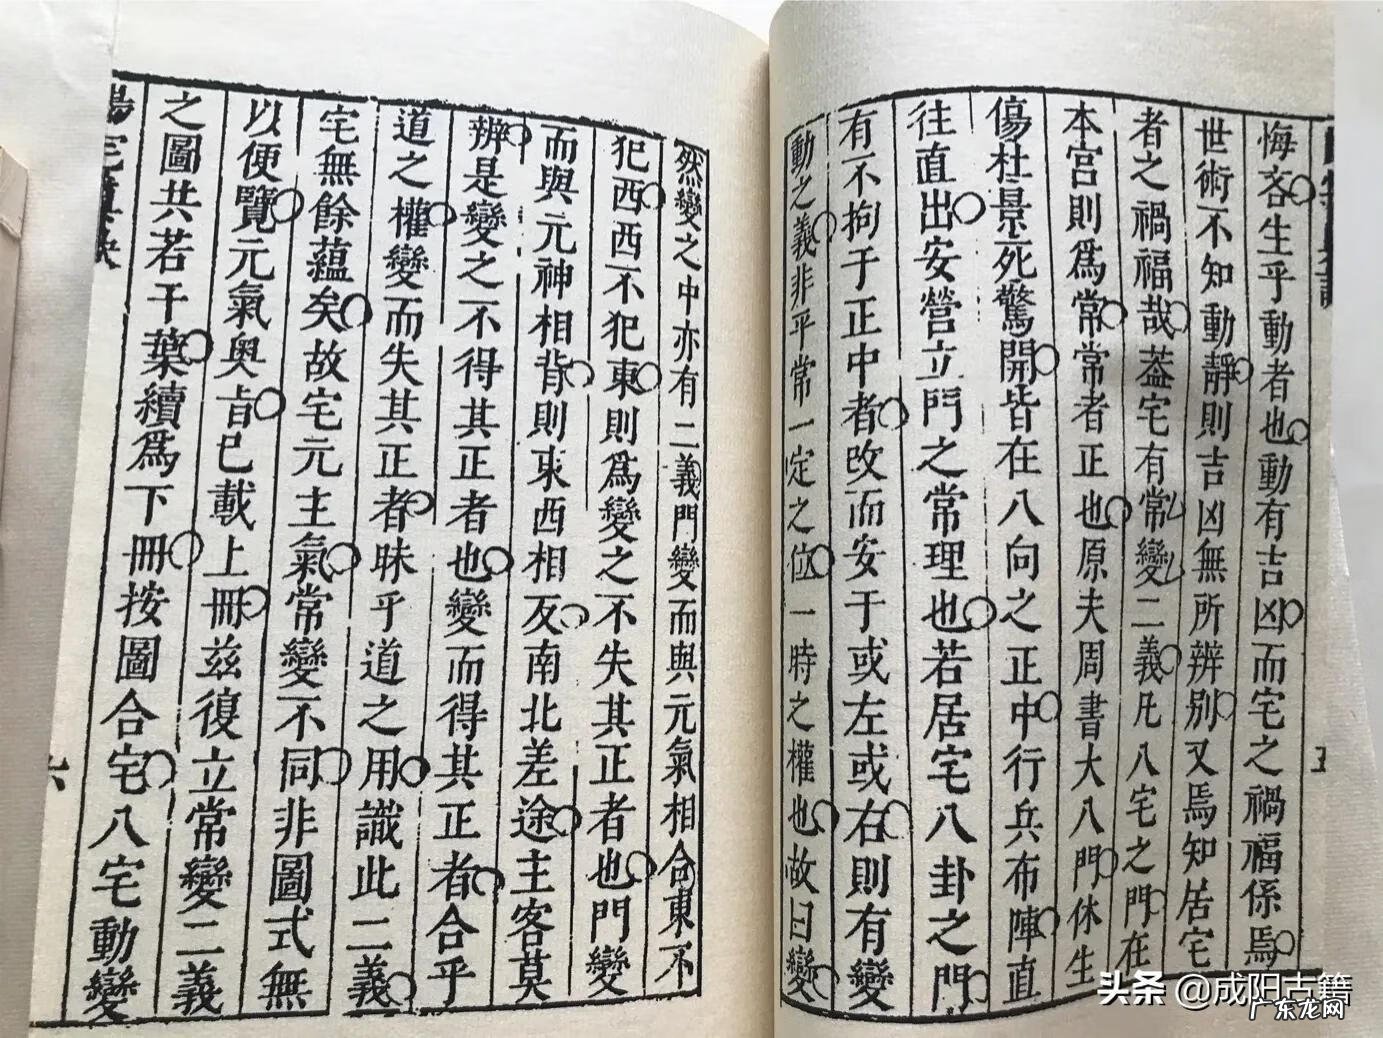 悔吝生乎動者也動有吉凶而宅之禍福係焉
世術不知動靜則吉凶無所辨別又焉知居宅
者之禍福哉葢宅有常變二義凡八宅之門在
本宮則爲常常者正也原夫周書大八門休生
傷杜景死驚開皆在八向之正中行兵布陣直
往直出安營立門之常理也若居宅八卦之門
有不拘于正中者改而安于或左或右則有變
動之義非平常一定之位一時之權也故曰變
然變之中亦有二義門變而與元氣相合東不
犯西西不犯東則爲變之不失其正者也門變
而與元神相背則東西相反南北差途主客莫
辨是變之不得其正者也變而得其正者合乎
道之權變而失其正者昧乎道之用識此二義
宅無餘蘊矣故宅元主氣常變不同非圖式無
以便覽元氣奥旨已載上冊兹復立常變二義
之圖共若干葉續爲下冊按圖合宅八宅動變
陽宅真訣
六
五
头条 @成阳古籍
广东龙网